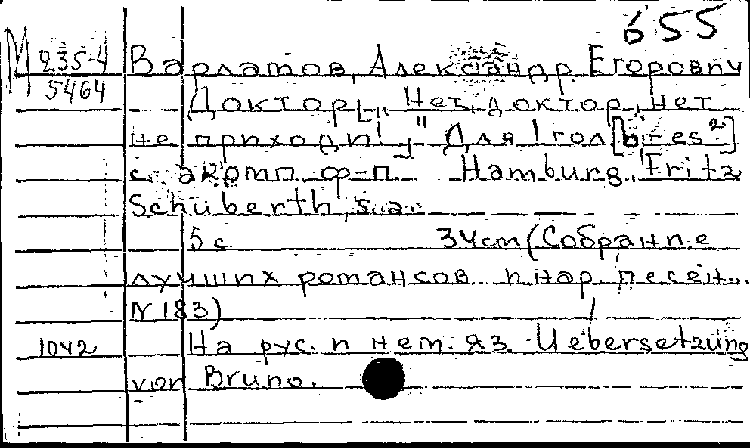 655
М 235-4 Варламов, Александр Егорович
5464 Доктор [„Нет, доктор, нет
не приходи!"] Для 1 гол [b-es²]
с акомп. ф-п. Hamburg, Fritz
Schuberth, s.a.
5 с 34 cm (Собрание
лучших романсов и нар. песен...
N 183)
1042 На рус. и нем. яз. Uebersetzung
von Bruno.